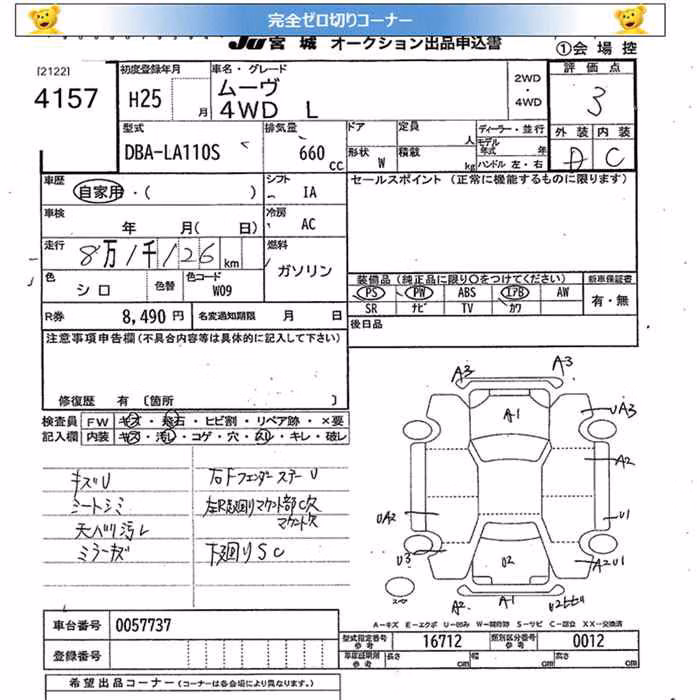 完全ゼロ切りコーナー
JU宮城 オークション出品申込書
①会場控
[2122]
4157
初度登録年月
H25 月
車名・グレード
ムーヴ
4WD L
2WD・4WD
評価点
3
外装 内装
D C
型式
DBA-LA110S
排気量
660 CC
ドア
定員 人
形状 W
積載 kg
ディーラー・並行
モデル年式 年
ハンドル 左・右
車歴
自家用・( )
シフト
IA
セールスポイント (正常に機能するものに限ります)
車検
年 月( 日)
冷房
AC
走行
8万1千126km
燃料
ガソリン
色
シロ
色替
色コード
W09
装備品(純正品に限り○をつけてください)
新車保証書
PS PW ABS エアB AW
有・無
SR ナビ TV カワ
R券
8,490円
名変通知期限 月 日
後日品
注意事項申告欄(不具合内容等は具体的に記入して下さい)
修復歴 有 〔箇所 〕
検査員記入欄
FW キズ・飛石・ヒビ割・リペア跡・×要
内装 キズ・汚レ・コゲ・穴・スレ・キレ・破レ
キズU
シートシミ
天バリ汚レ
ミラーキズ
右FフェンダーステーU
下廻りSC
A3
A3
A1
UA3
A2
UA2
U1
U3
U2
A2U1
A2
A1
A-キズ E-エクボ U-凹み W-補修跡 S-サビ C-腐食 XX-交換済
車台番号
0057737
登録番号
型式指定番号 参考
16712
類別区分番号 参考
0012
長さ cm 幅 cm 高さ cm
希望出品コーナー (コーナーは各会場により異なります。)